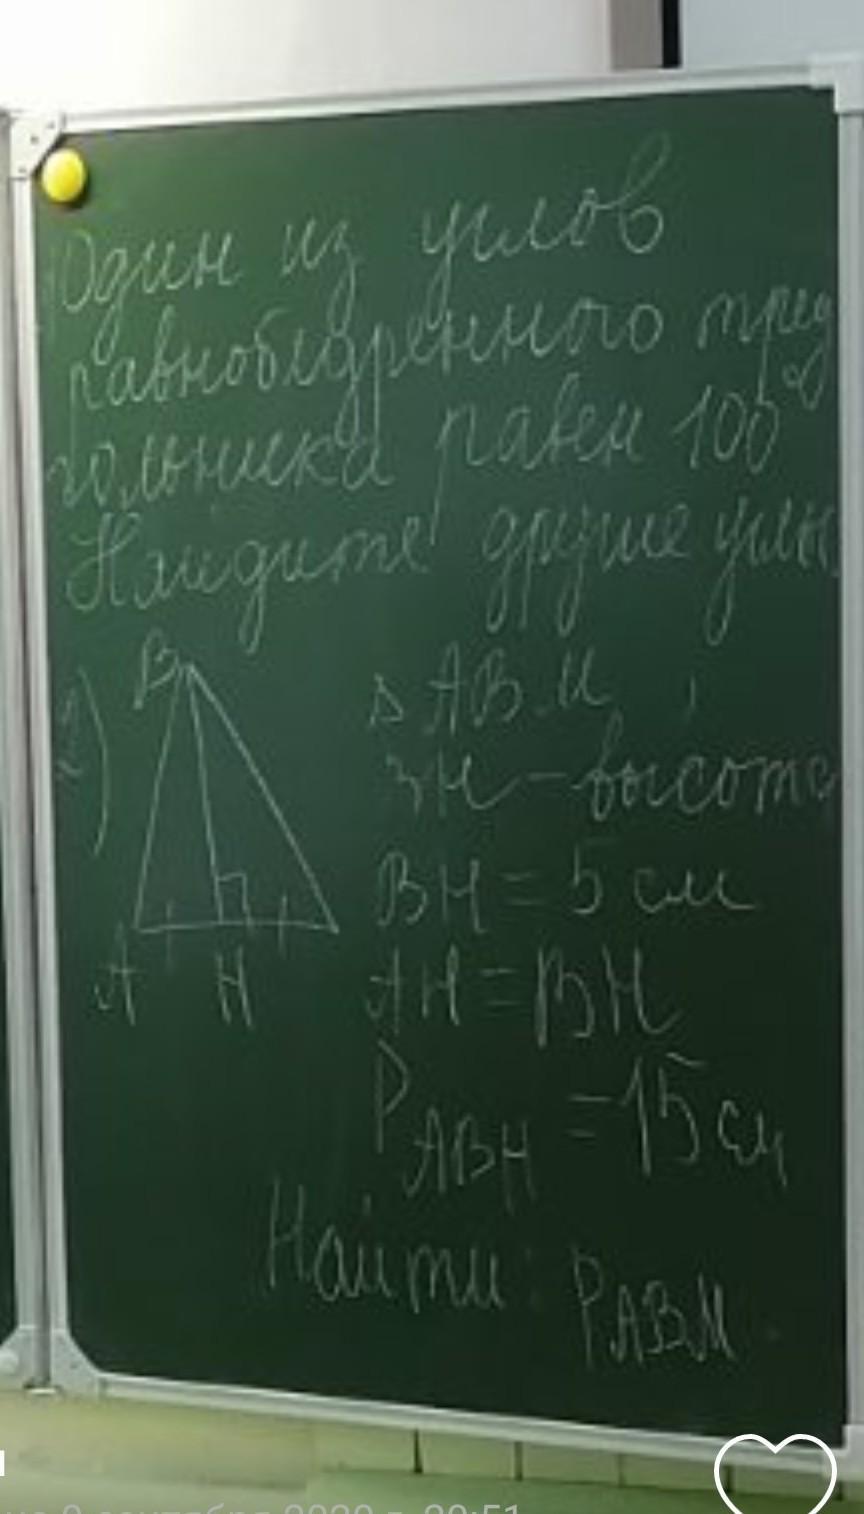 Один из углов
равнобедренного треу
гольника равен 100°
Найдите другие углы.
2)
B
A
H
△ ABM,
BH - высота
BH = 5 см
AH = BH
P ABH = 15 см
Найти: P ABM.
2020 г. 20:51